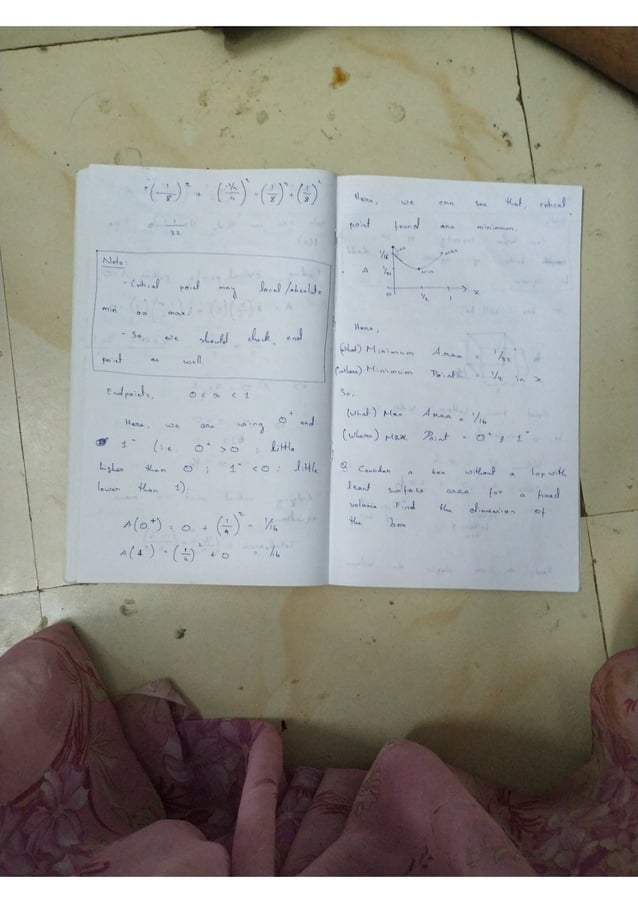 (1/8)² + (1/2/4)² = (1/8)² + (1/8)²
= 1/32
Note:
- Critical point may local/absolute
min or max.
- So, we should check end
point as well
Endpoints, 0 < x < 1
Here, we are using 0⁺ and
1⁻ (i.e. 0⁺ > 0 ; little
higher than 0 ; 1⁻ < 0 ; little
lower than 1).
A(0⁺) = 0 + (1/4)² = 1/16
A(1⁻) = (1/4)² + 0 = 1/16
Here, we can see that, critical
point found are minimum.
1/16 max max
A 1/32 min
0 1/2 1 x
Here,
(what) Minimum Area = 1/32
(where) Minimum Point = 1/2 in x
So,
(What) Max Area = 1/16
(Where) Max Point = 0⁺ & 1⁻
Q Consider a box without a top with
least surface area for a fixed
volume. Find the dimension of
the box